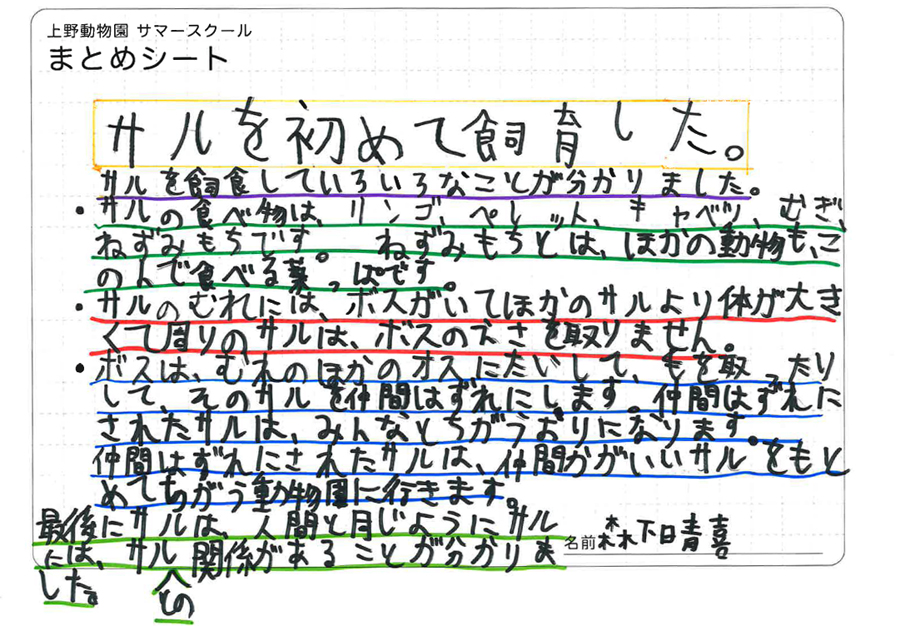 上野動物園 サマースクール
まとめシート
サルを初めて飼育した。
サルを飼食していろいろなことが分かりました。
・サルの食べ物は、リンゴ、ペレット、キャベツ、むぎ、
ねずみもちです。ねずみもちとは、ほかの動物も、こ
のんで食べる葉っぱです。
・サルのむれには、ボスがいてほかのサルより体が大き
くて周りのサルは、ボスのえさを取りません。
・ボスは、むれのほかのオスにたいして、もを取ったり
して、そのサルを仲間はずれにします。仲間はずれに
されたサルは、みんなとちがうおりになります。
仲間はずれにされたサルは、仲間かがいいサルをもと
めてちがう動物園に行きます。
最後にサルは、人間と同じようにサル
には、サルとの関係があることが分かりま
した。
名前 森下日青喜